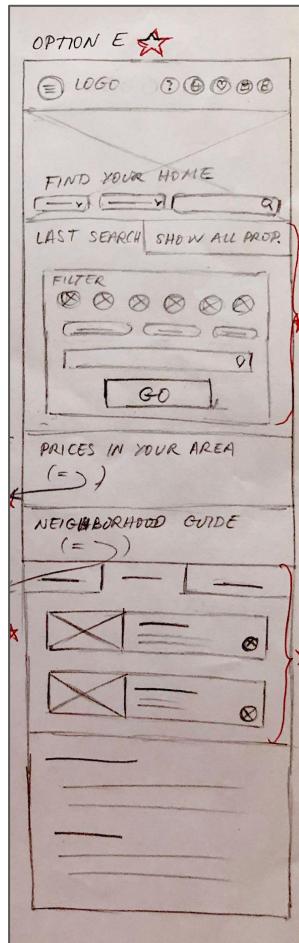 OPTION E
LOGO ?
FIND YOUR HOME
LAST SEARCH SHOW ALL PROP.
FILTER
GO
PRICES IN YOUR AREA
NEIGHBORHOOD GUIDE